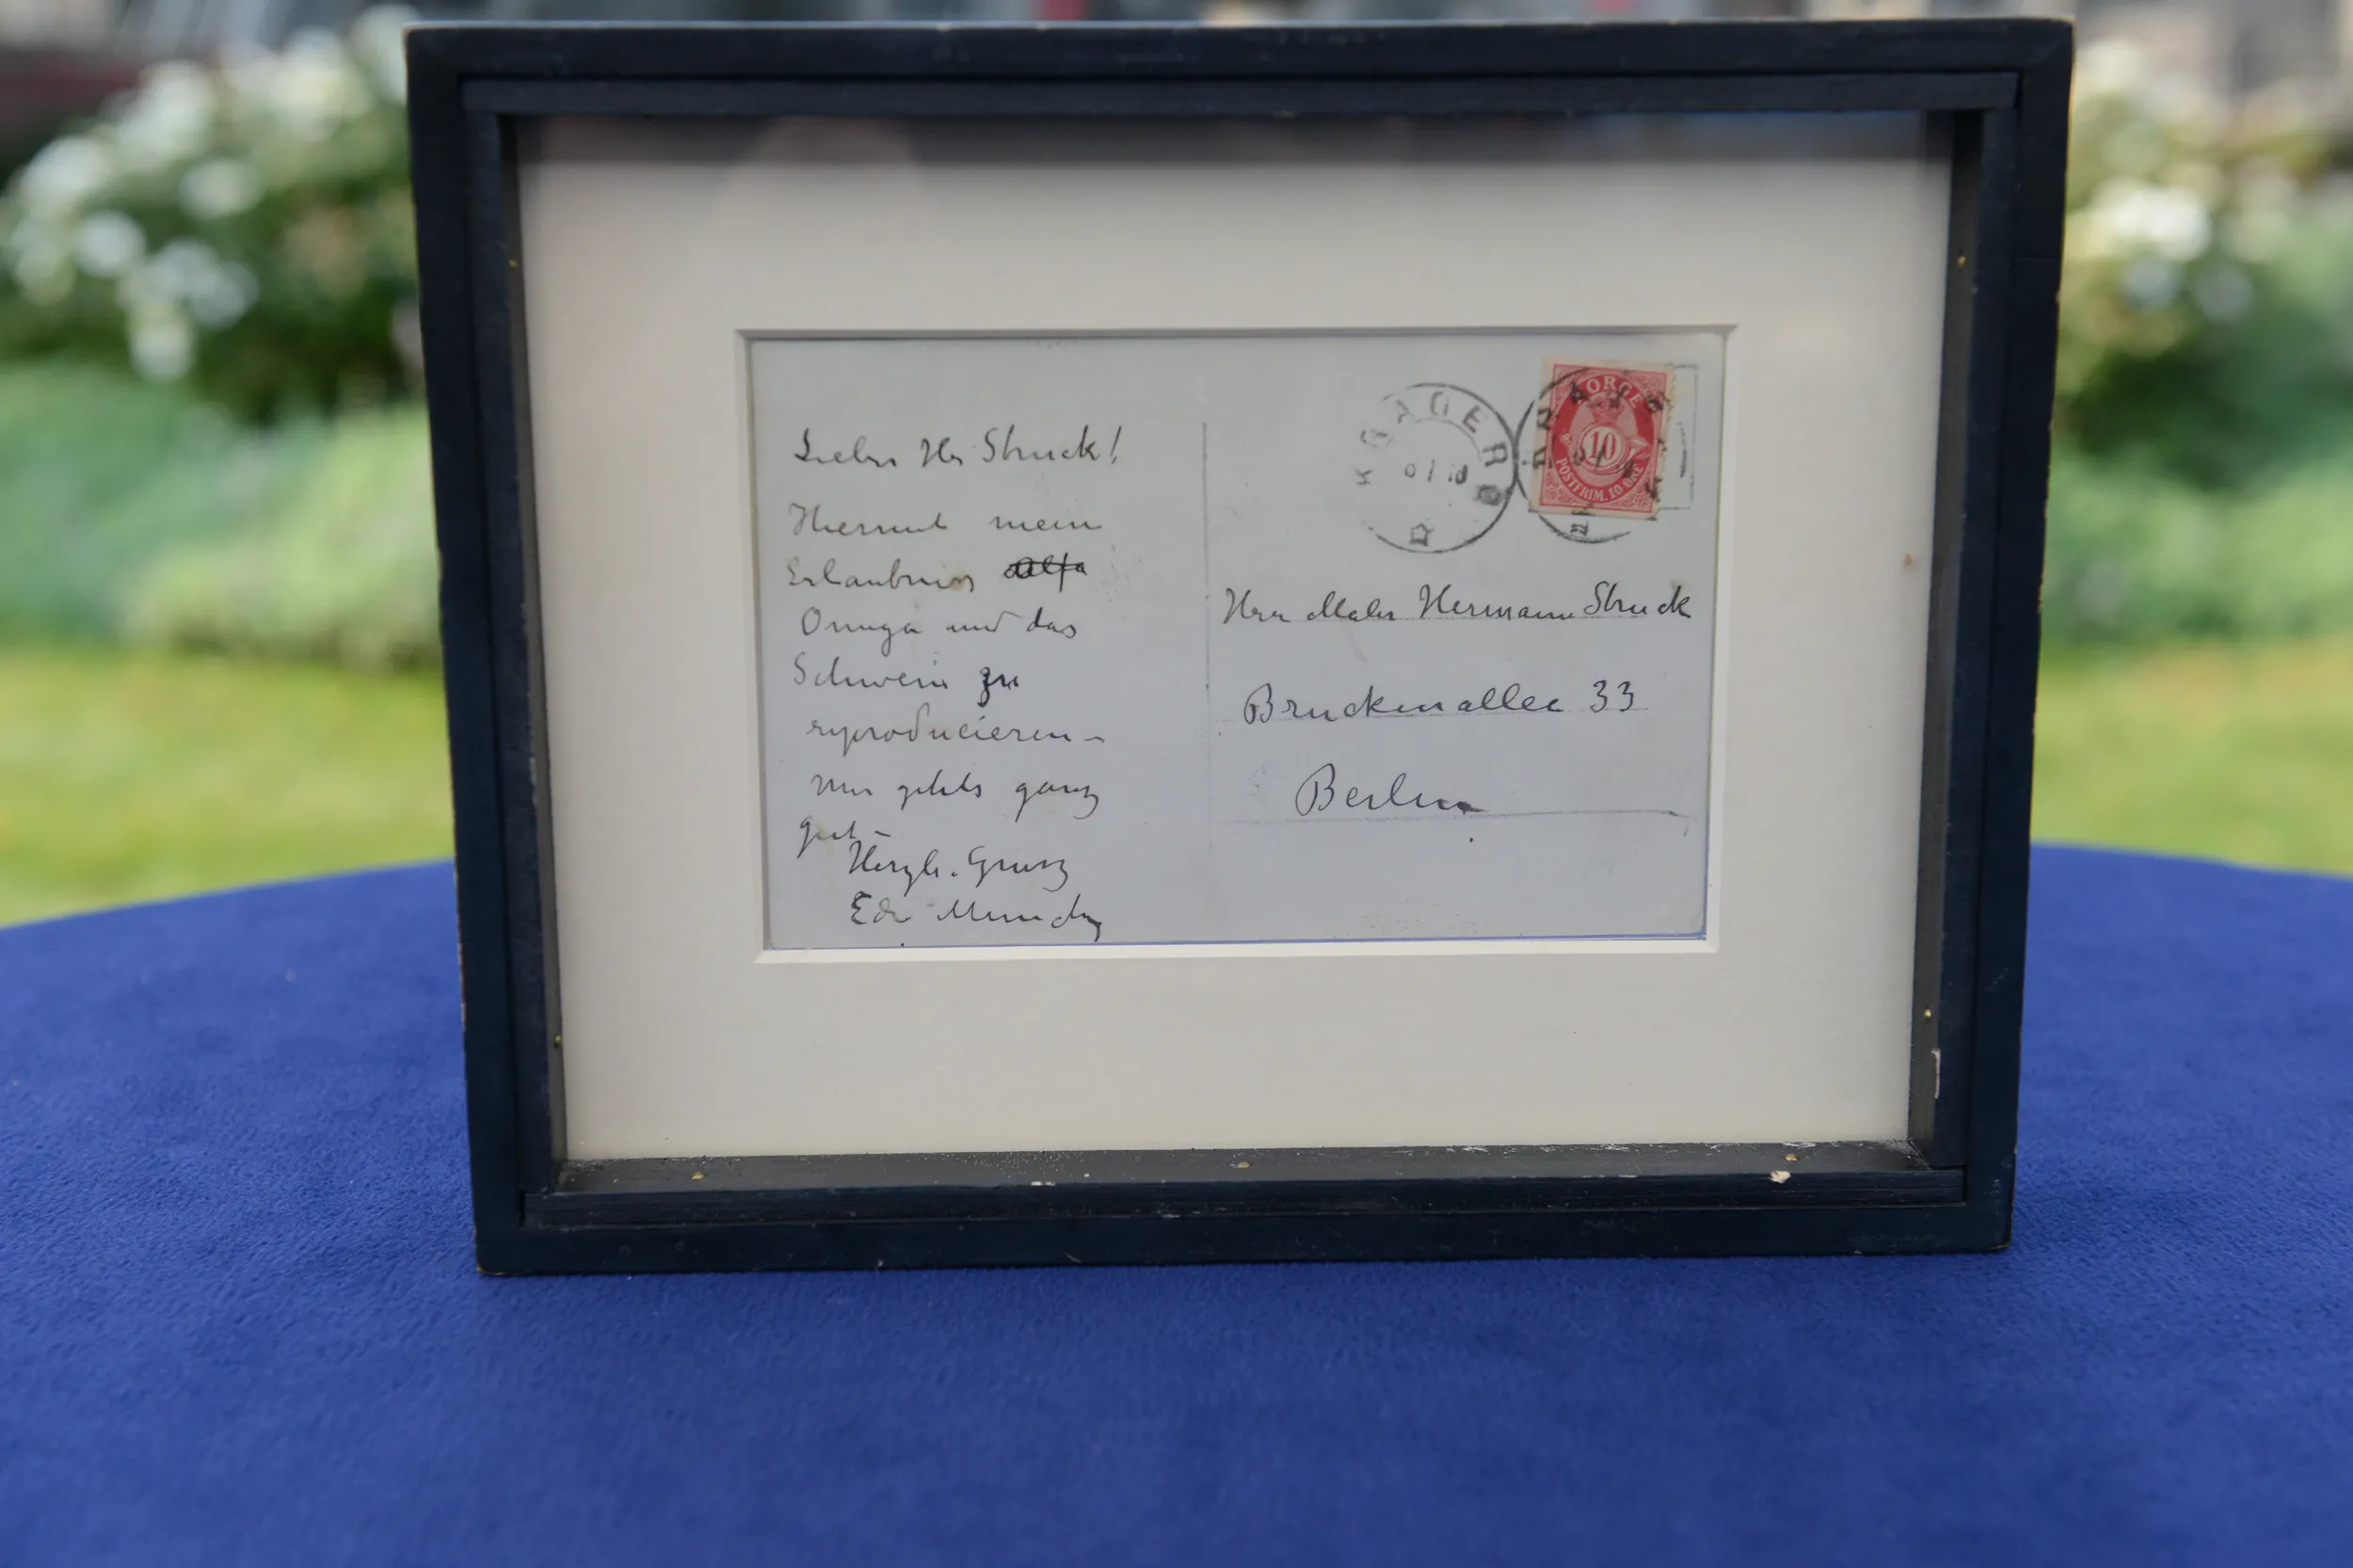 Lieber Hr Struck!
Hiermit mein
Erlaubniss Alfa
Omega und das
Schwein zu
reproducieren –
Mir gehts ganz
gut –
Herzl. Grusz
Edv Munch
KRAGERØ
NORGE
10
POSTFRIM. 10 ØRE
Herr Maler Hermann Struck
Brückenallee 33
Berlin